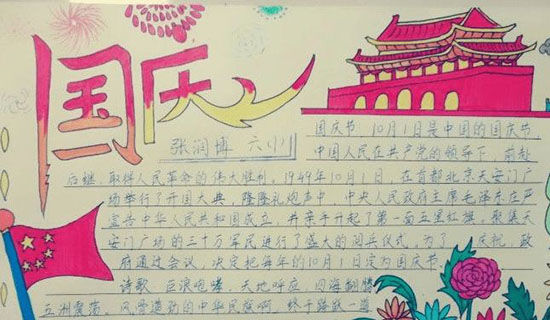 国庆
张润博 六(1)
国庆节，10月1日是中国的国庆节，
中国人民在共产党的领导下，前赴
后继，取得人民革命的伟大胜利，1949年10月1日，在首都北京天安门广
场举行了开国大典，隆隆礼炮声中，中央人民政府主席毛泽东庄严
宣告中华人民共和国成立，并亲手升起了第一面五星红旗，聚集天
安门广场的三十万军民进行了盛大的阅兵仪式，为了 庆祝，政
府通过会议，决定把每年的10月1日定为国庆节
诗歌 巨浪咆哮，天地呼应 四海翻腾
五洲震荡，风雷激动的中华民族啊 终于